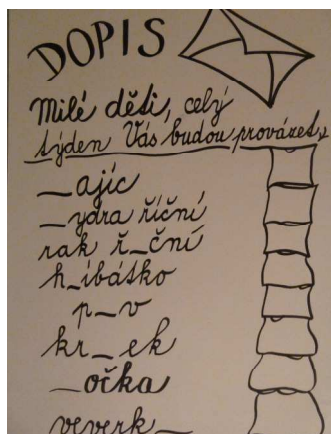 DOPIS
Milé děti, celý
týden Vás budou provázet
_ajíc
_ydra říční
rak ř_ční
h_ibátko
p_v
kr_ek
_očka
veverk_